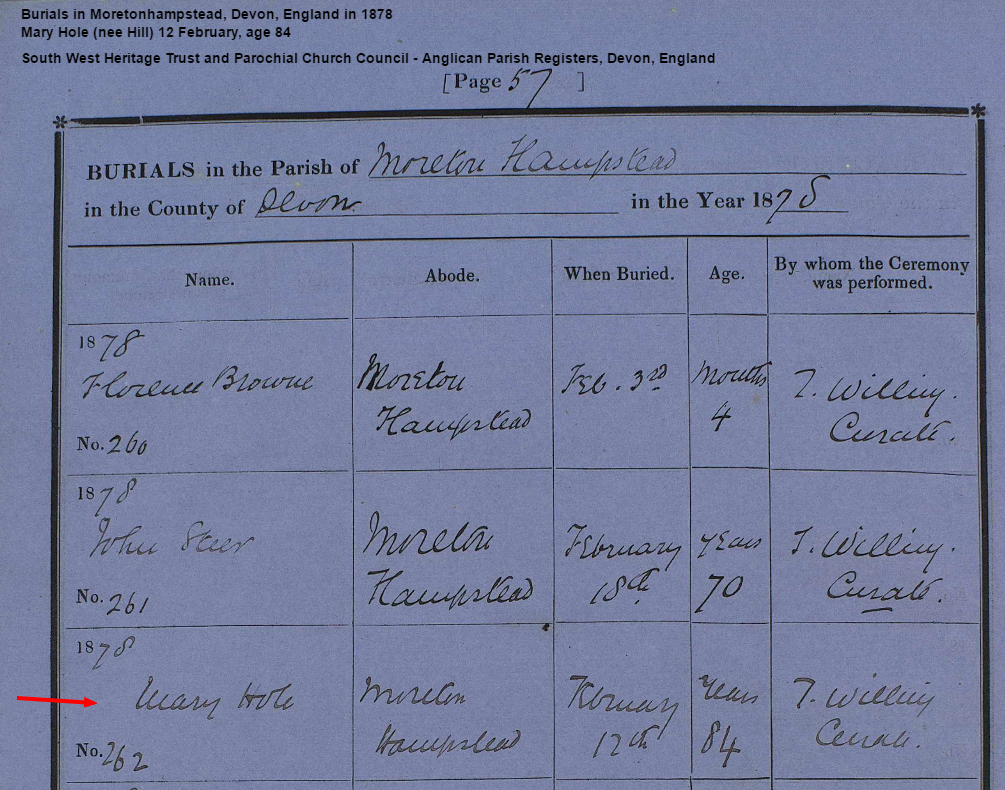 Burials in Moretonhampstead, Devon, England in 1878
Mary Hole (nee Hill) 12 February, age 84
South West Heritage Trust and Parochial Church Council - Anglican Parish Registers, Devon, England
[Page 57 ]
BURIALS in the Parish of Moreton Hampstead
in the County of Devon in the Year 1878
Name. Abode. When Buried. Age. By whom the Ceremony was performed.
1878
Florence Browne Moreton Feb. 3rd Months T. Willing.
Hampstead 4 Curate.
No. 260
1878
John Steer Moreton February years T. Willing.
Hampstead 18th 70 Curate.
No. 261
1878
Mary Hole Moreton February Years T. Willing
Hampstead 12th 84 Curate.
No. 262